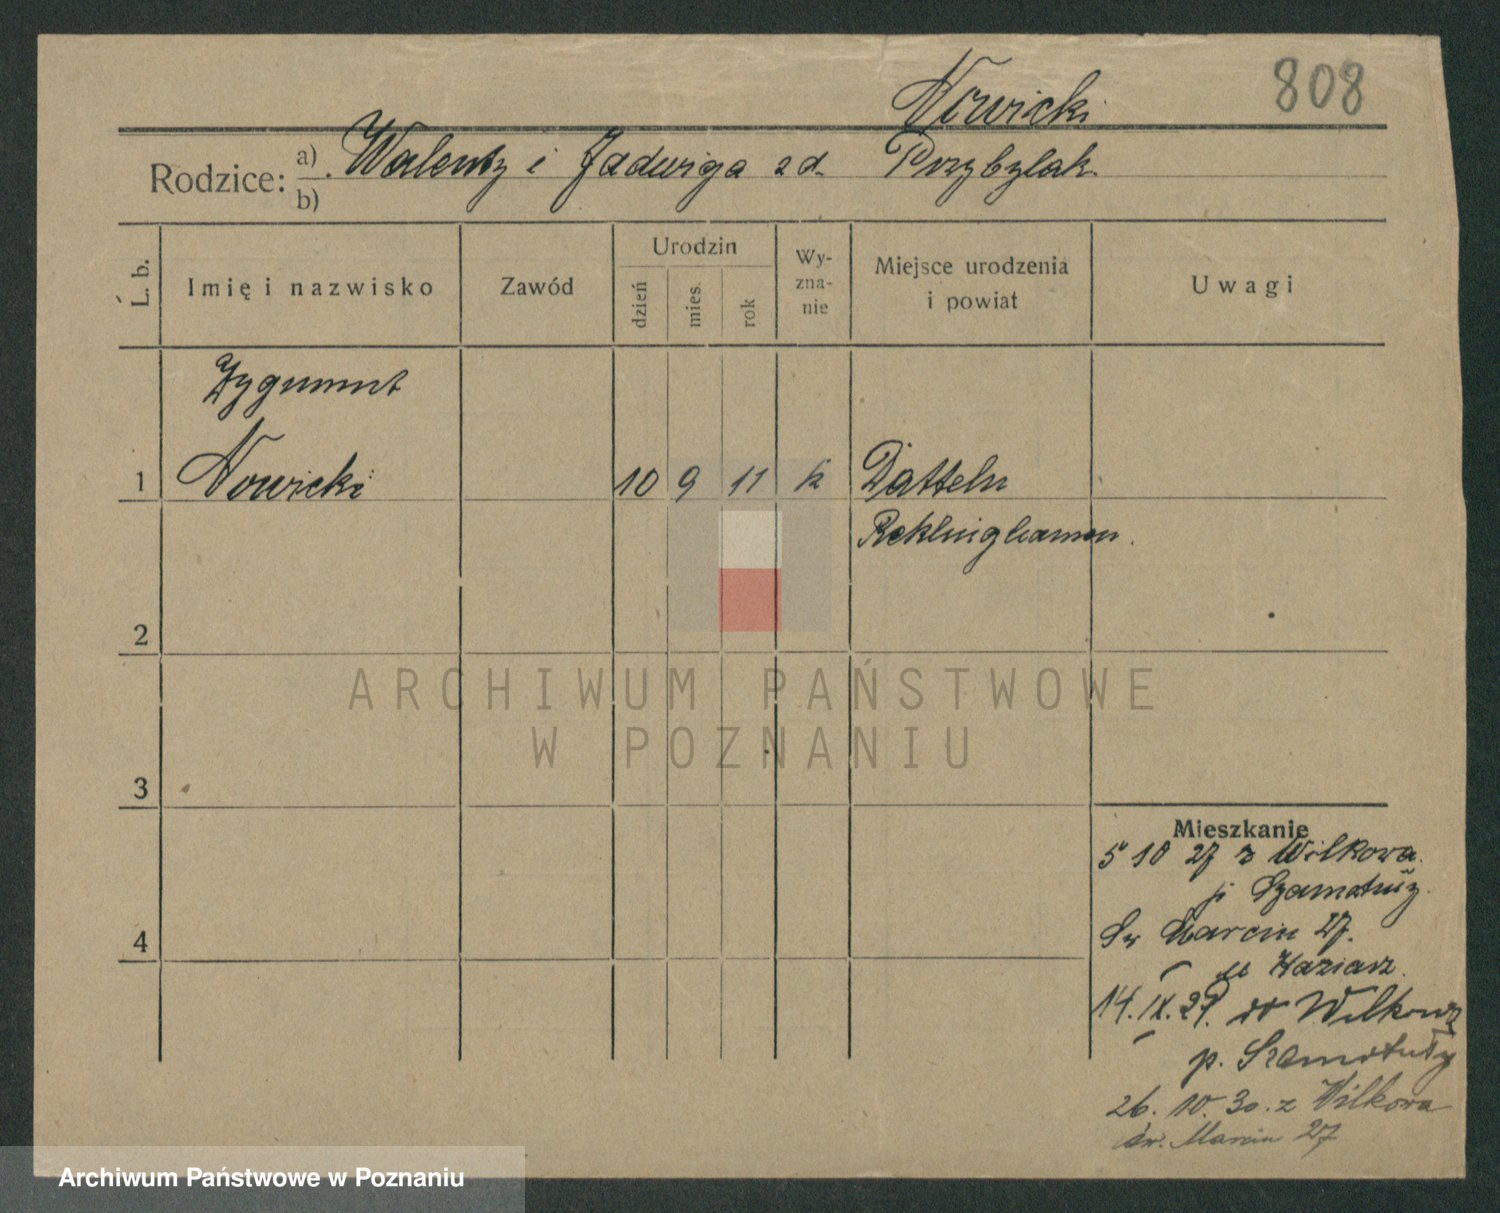 808
Nowicki
Rodzice: a) Walenty i Jadwiga zd. Przybylak
b)
L. b.
Imię i nazwisko
Zawód
Urodzin
dzień
mies.
rok
Wy-
zna-
nie
Miejsce urodzenia
i powiat
Uwagi
Zygmunt
1 Nowicki 10 9 11 k Datteln
Reklinghausen.
2
3
4
Mieszkanie
5 10 27 z Wilkowa
p Szamotuły.
Św Marcin 27.
u Kaziarz.
14.IX.29. do Wilkowa
p. Szamotuły
26. 10. 30. z Wilkowa
św. Marcin 27
ARCHIWUM PAŃSTWOWE
W POZNANIU
Archiwum Państwowe w Poznaniu